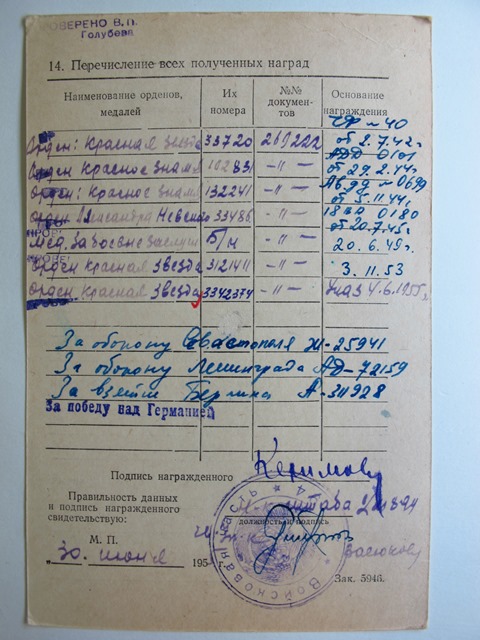 ПРОВЕРЕНО В.П.
Голубева
14. Перечисление всех полученных наград
Наименование орденов, медалей
Их номера
№№ документов
Основание награждения
Орден: Красная звезда 33720 269222 ЧФ №40 от 2.7.42г.
Орден Красное знамя 102831 -"- АДД 0101 от 29.2.44г.
Орден: Красное знамя 132241 -"- от 5.11.44г.
Орден Александра Невского 33486 -"- 18 0180 от 20.7.45г.
Мед. За боевые заслуги б/н -"- 20.6.49г.
Орден Красная звезда 3121411 -"- 3.11.53
Орден Красная звезда 3342374 -"- Указ 4.6.1955г.
За оборону Севастополя Ж-25941
За оборону Ленинграда АД-72159
За взятие Берлина А-311928
За победу над Германией
Подпись награжденного Керимов
Правильность данных
и подпись награжденного
свидетельствую:
штаба
должность и подпись
М. П.
30. июня 195 г.
Войсковая часть
Зак. 594б.